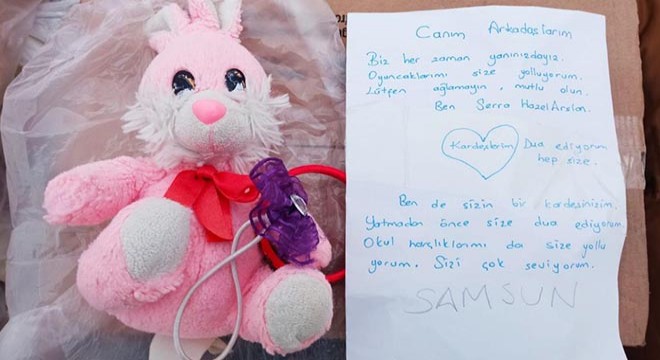 Canım Arkadaşlarım
Biz her zaman yanınızdayız.
Oyuncaklarımı size yolluyorum.
Lütfen ağlamayın, mutlu olun.
Ben Serra Hazel Arslan.
Kardeşlerim Dua ediyorum
hep size.
Ben de sizin bir kardeşinizim.
Yatmadan önce size dua ediyorum.
Okul harçlıklarımı da size yollu
yorum. Sizi çok seviyorum.
SAMSUN